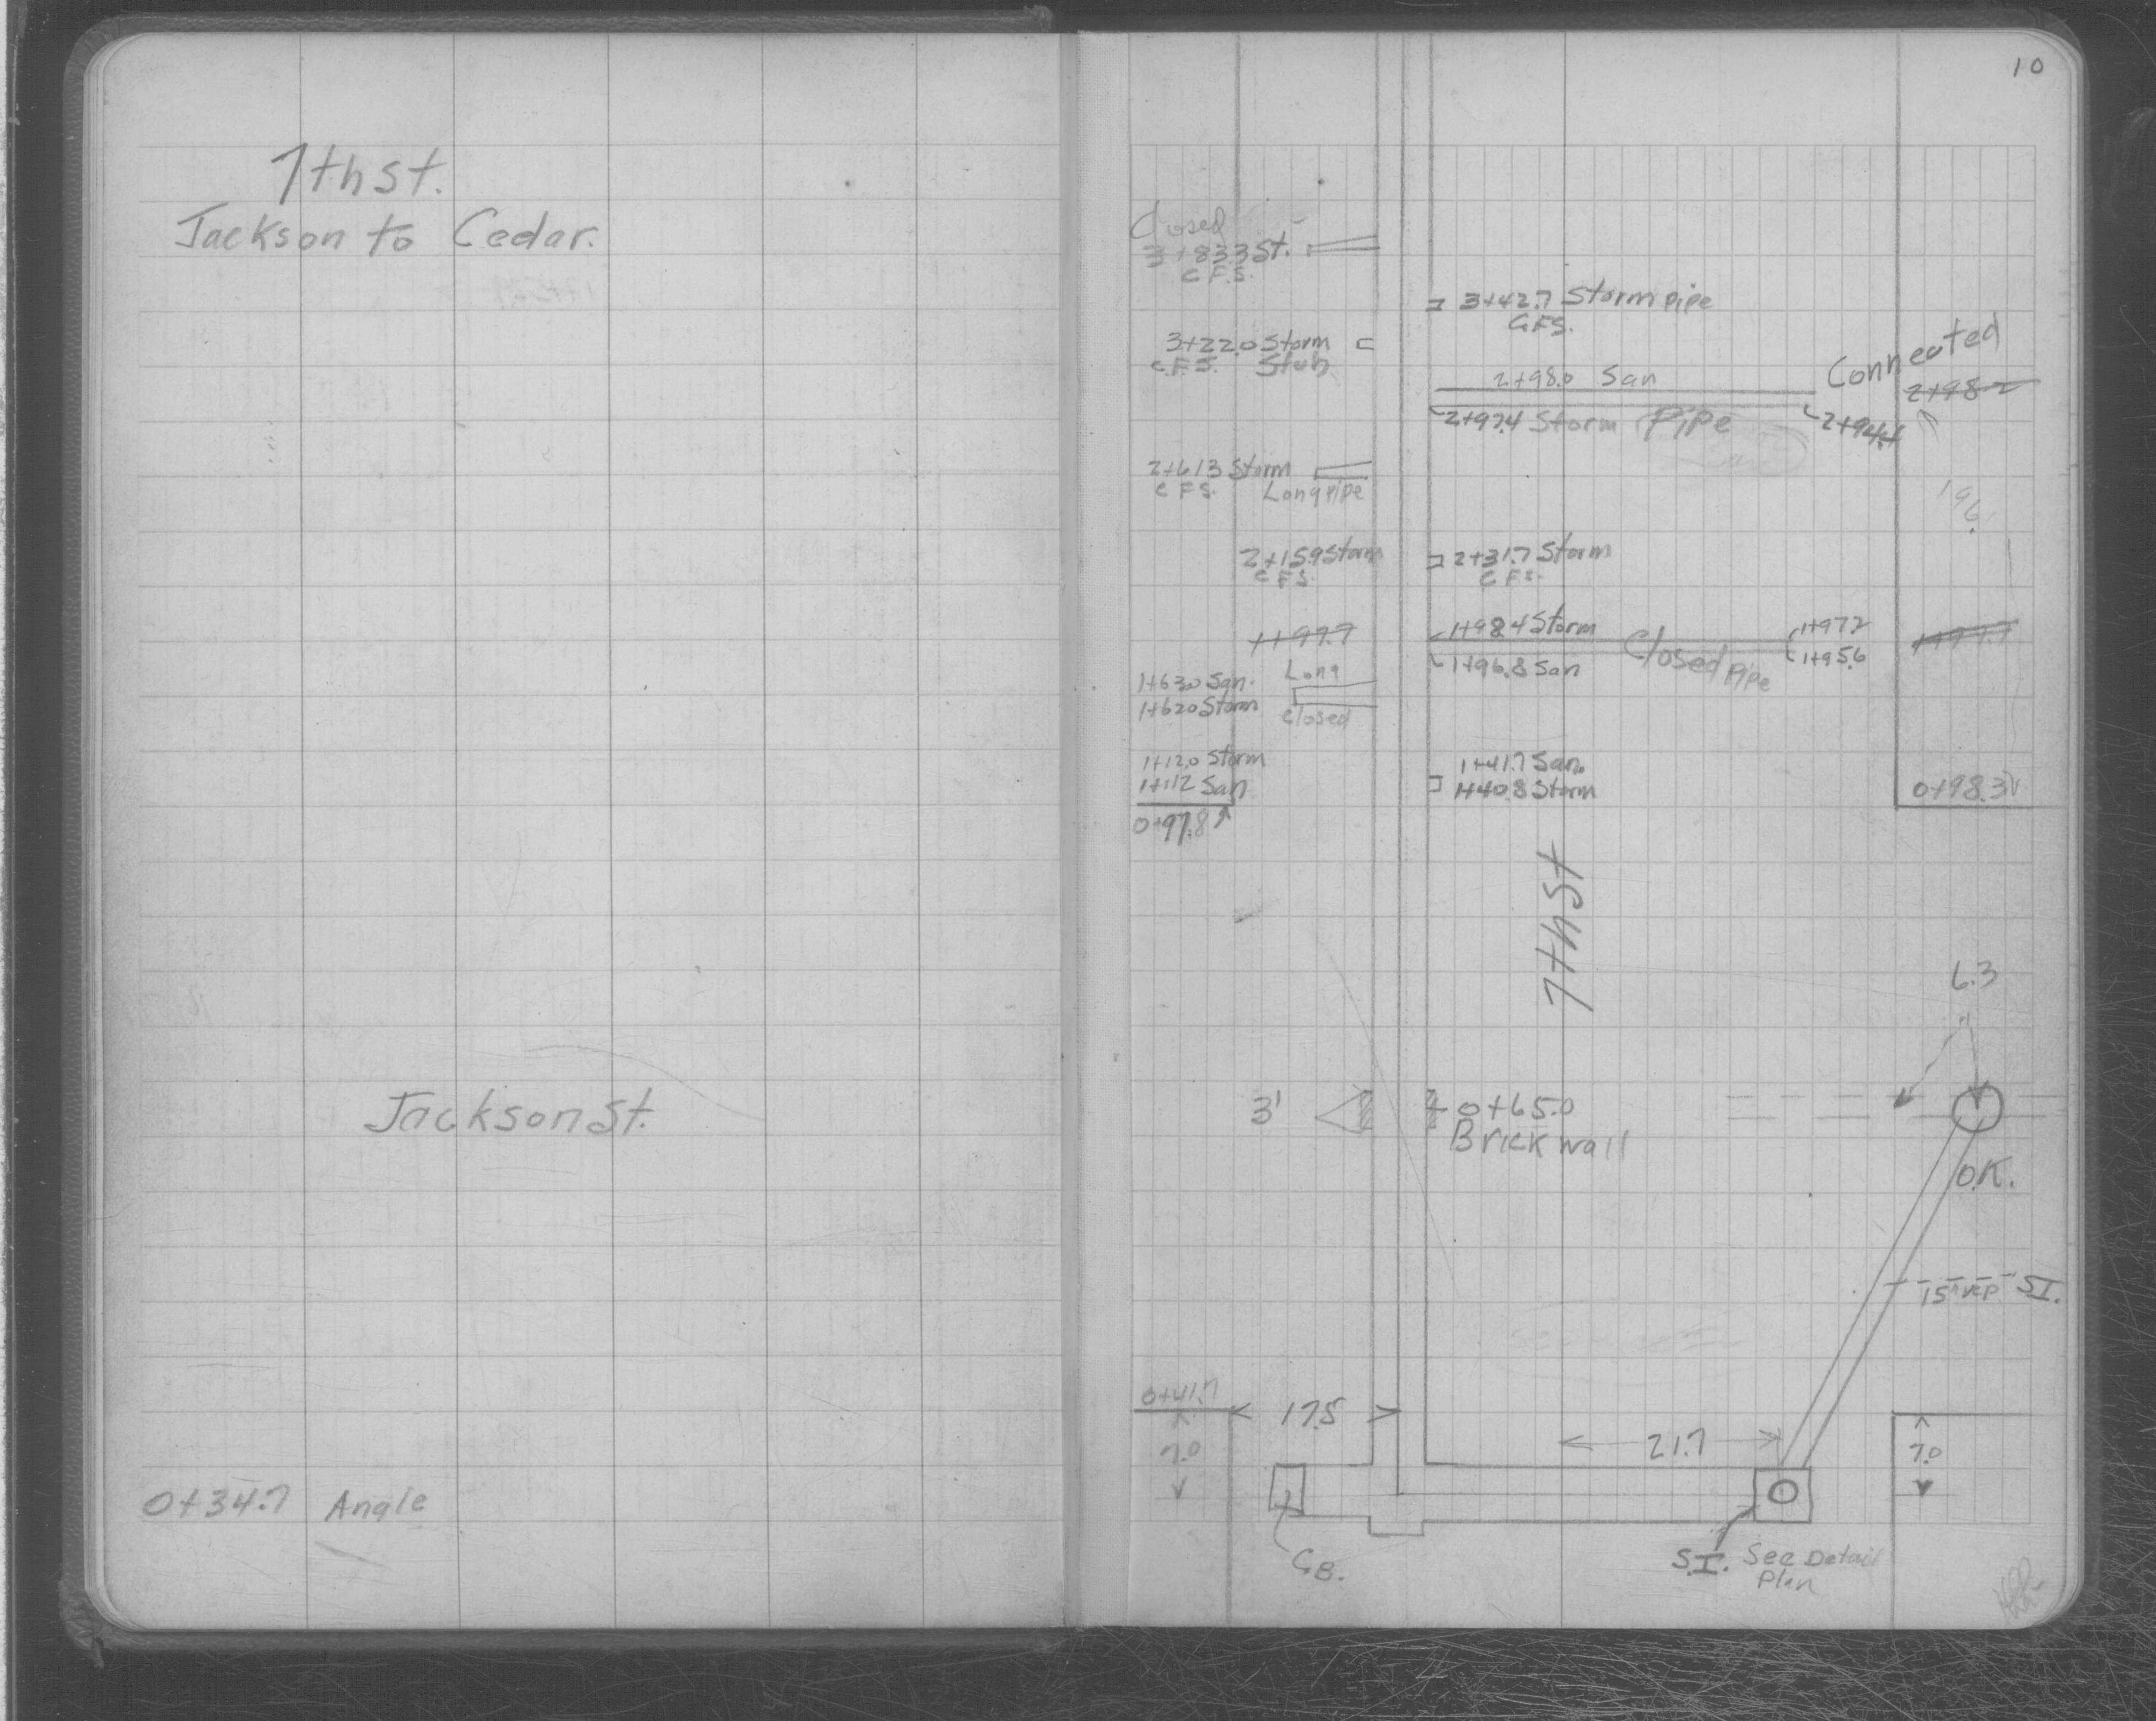 7th st.
Jackson to Cedar.
Jackson St.
0+34.7 Angle
10
Closed
3+83.3 St.
C.F.S.
3+42.7 Storm pipe
C.F.S.
3+22.0 Storm
C.F.S. Stub
Connected
2+98.0 San
2+98.2
2+97.4 Storm Pipe
2+94.4
2+61.3 Storm
C.F.S. Long pipe
196.
2+15.9 Storm
C.F.S.
2+31.7 Storm
C.F.S.
1+97.9
1+98.4 Storm
1+97.2
Closed pipe
1+96.8 San
1+95.6
1+63.0 San. Long
1+62.0 Storm Closed
1+12.0 Storm
1+11.2 San
0+97.8
1+41.7 San.
1+40.8 Storm
0+98.3
7th St
6.3
3'
0+65.0
Brick wall
O.K.
15" VCP S.I.
0+41.7
17.5
21.7
7.0
7.0
C.B.
S.I. See Detail
Plan